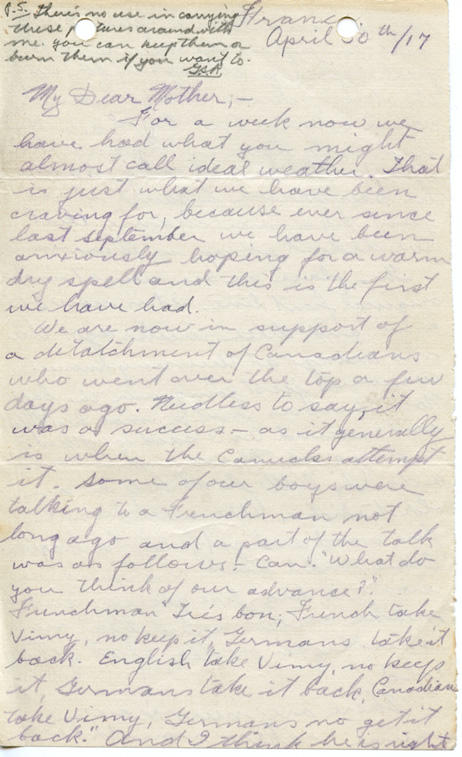 P.S. There's no use in carrying
these pictures around with
me. you can keep them or
burn them if you want to.
G.S.A.
France
April 30th/17
My Dear Mother,-
For a week now we
have had what you might
almost call ideal weather. That
is just what we have been
craving for, because ever since
last september we have been
anxiously hoping for a warm
dry spell and this is the first
we have had.
We are now in support of
a detatchment of Canadians
who went over the top a few
days ago. Needless to say, it
was a success - as it generally
is when the Canucks attempt
it. Some of our boys were
talking to a Frenchman not
long ago and a part of the talk
was as follows:- Can. "What do
you think of our advance?"
Frenchman "Trés bon, French take
Vimy, no keep it, Germans take it
back. English take Vimy, no keep
it, Germans take it back, Canadian
take Vimy, Germans no get it
back." And I think he is right